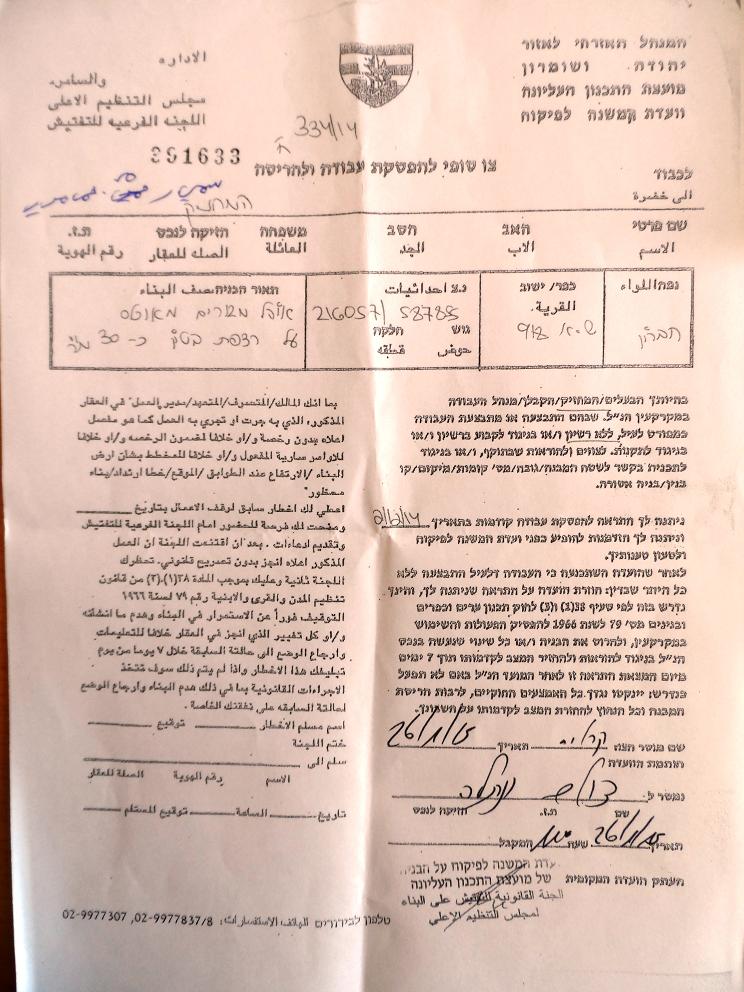 המנהל האזרחי לאזור
יהודה ושומרון
מועצת התכנון העליונה
וועדת המשנה לפיקוח
الاداره
والسامره
مجلس التنظيم الاعلى
اللجنه الفرعيه للتفتيش
334/14
391633
צו סופי להפסקת עבודה ולהריסה
לכבוד
الى حضرة
המחזיק
שם פרטי האב הסב משפחה חזיקה לנכס ת.ז.
الاسم الاب الجد العائلة الصلة للعقار رقم الهوية
נפה اللواء
חברון
כפר/ ישוב
القرية.
נ.צ احداثيات
216057/ 58785
גוש חלקה
حوض قطعه
תאור הבניה وصف البناء
אוהל מגורים
על רצפת בטון כ- 30 מ"ר
בהיותך הבעלים/המחזיק/הקבלן/מנהל העבודה
במקרקעין הנ"ל, שבהם התבצעה או מתבצעת העבודה
כמפורט לעיל, ללא רשיון ו/או בניגוד לקבוע ברשיון ו/או
בניגוד לתקנות, לצווים ולהוראות שבתוקף, ו/או בניגוד
לתכנית בקשר לשטח המבנה/גובה/מס' קומות/מיקום/קו
בנין/בניה אסורה.
ניתנה לך התראה להפסקת עבודה קודמות בתאריך
וניתנה לך הזדמנות להופיע בפני ועדת המשנה לפיקוח
ולטעון טענותיך.
לאחר שהועדה השתכנעה כי העבודה דלעיל התבצעה ללא
כל היתר שבדין, חוזרת הועדה על התראה שניתנה לך, והינך
נדרש בזה לפי סעיף 38(1) (3) לחוק תכנון ערים וכפרים
ובנינים מס' 79 לשנת 1966 להפסיק הפעולות והשימוש
במקרקעין, ולהרוס את הבניה ו/או כל שינוי שנעשה בנכס
הנ"ל בניגוד להוראות ולהחזיר המצב לקדמותו תוך 7 ימים
מיום המצאת התראה זו לאחר המועד הנ"ל באם לא תפעל
כנדרש: יינקטו נגדך כל האמצעים החוקיים, לרבות הריסת
המבנה וכל הנחוץ להחזרת המצב לקדמותו על חשבונך.
שם מוסר הצו תאריך
חותמת הוועדה
נמסר ל
שם ת.ז. חזיקה לנכס
תאריך שעה המקבל
העתק הועדה המקומית
ועדת המשנה לפיקוח על הבניה
של מועצת התכנון העליונה
لمجلس التنظيم الاعلى
بما انك المالك/المتصرف/المتعهد/مدير العمل" في العقار
المذكور، الذي به جرت او تجري به العمل كما هو مفصل
اعلاه بدون رخصة و/او خلافا لمضمون الرخصه و/او خلافا
للاوامر سارية المفعول و/او خلافا للمخطط بشان ارض
البناء /الارتفاع عند الطوابق /الموقع/خط ارتداد/بناء
محظور"
اعطي لك اخطار سابق لوقف الاعمال بتاريخ
ومنحت لك فرصة للحضور امام اللجنة الفرعية للتفتيش
وتقديم ادعاءات . بعد ان اقتنعت اللجنة ان العمل
المذكور اعلاه انجز بدون تصريح قانوني. تحظرك
اللجنة ثانية وعليك بموجب المادة ٣٨(١).(٣) من قانون
تنظيم المدن والقرى والابنية رقم ٧٩ لسنة ١٩٦٦
التوقيف فوراً عن الاستمرار في البناء وهدم ما انشأته
و/او كل تغيير الذي انجز في العقار خلافا للتعليمات
وارجاع الوضع الى حالته السابقة خلال ٧ يوما من يوم
تبليغك هذا الاخطار واذا لم يتم ذلك سوف تتخذ
الاجراءات القانونية بما في ذلك هدم البناء وارجاع الوضع
لحالته السابقه على نفقتك الخاصة.
اسم مسلم الاخطار توقيع
ختم اللجنة
سلم الى
الاسم رقم الهوية الصلة للعقار
تاريخ الساعة توقيع المستلم
טלפון לבירורים الهاتف الاستفسارات: 02-9977837/8 ,02-9977307